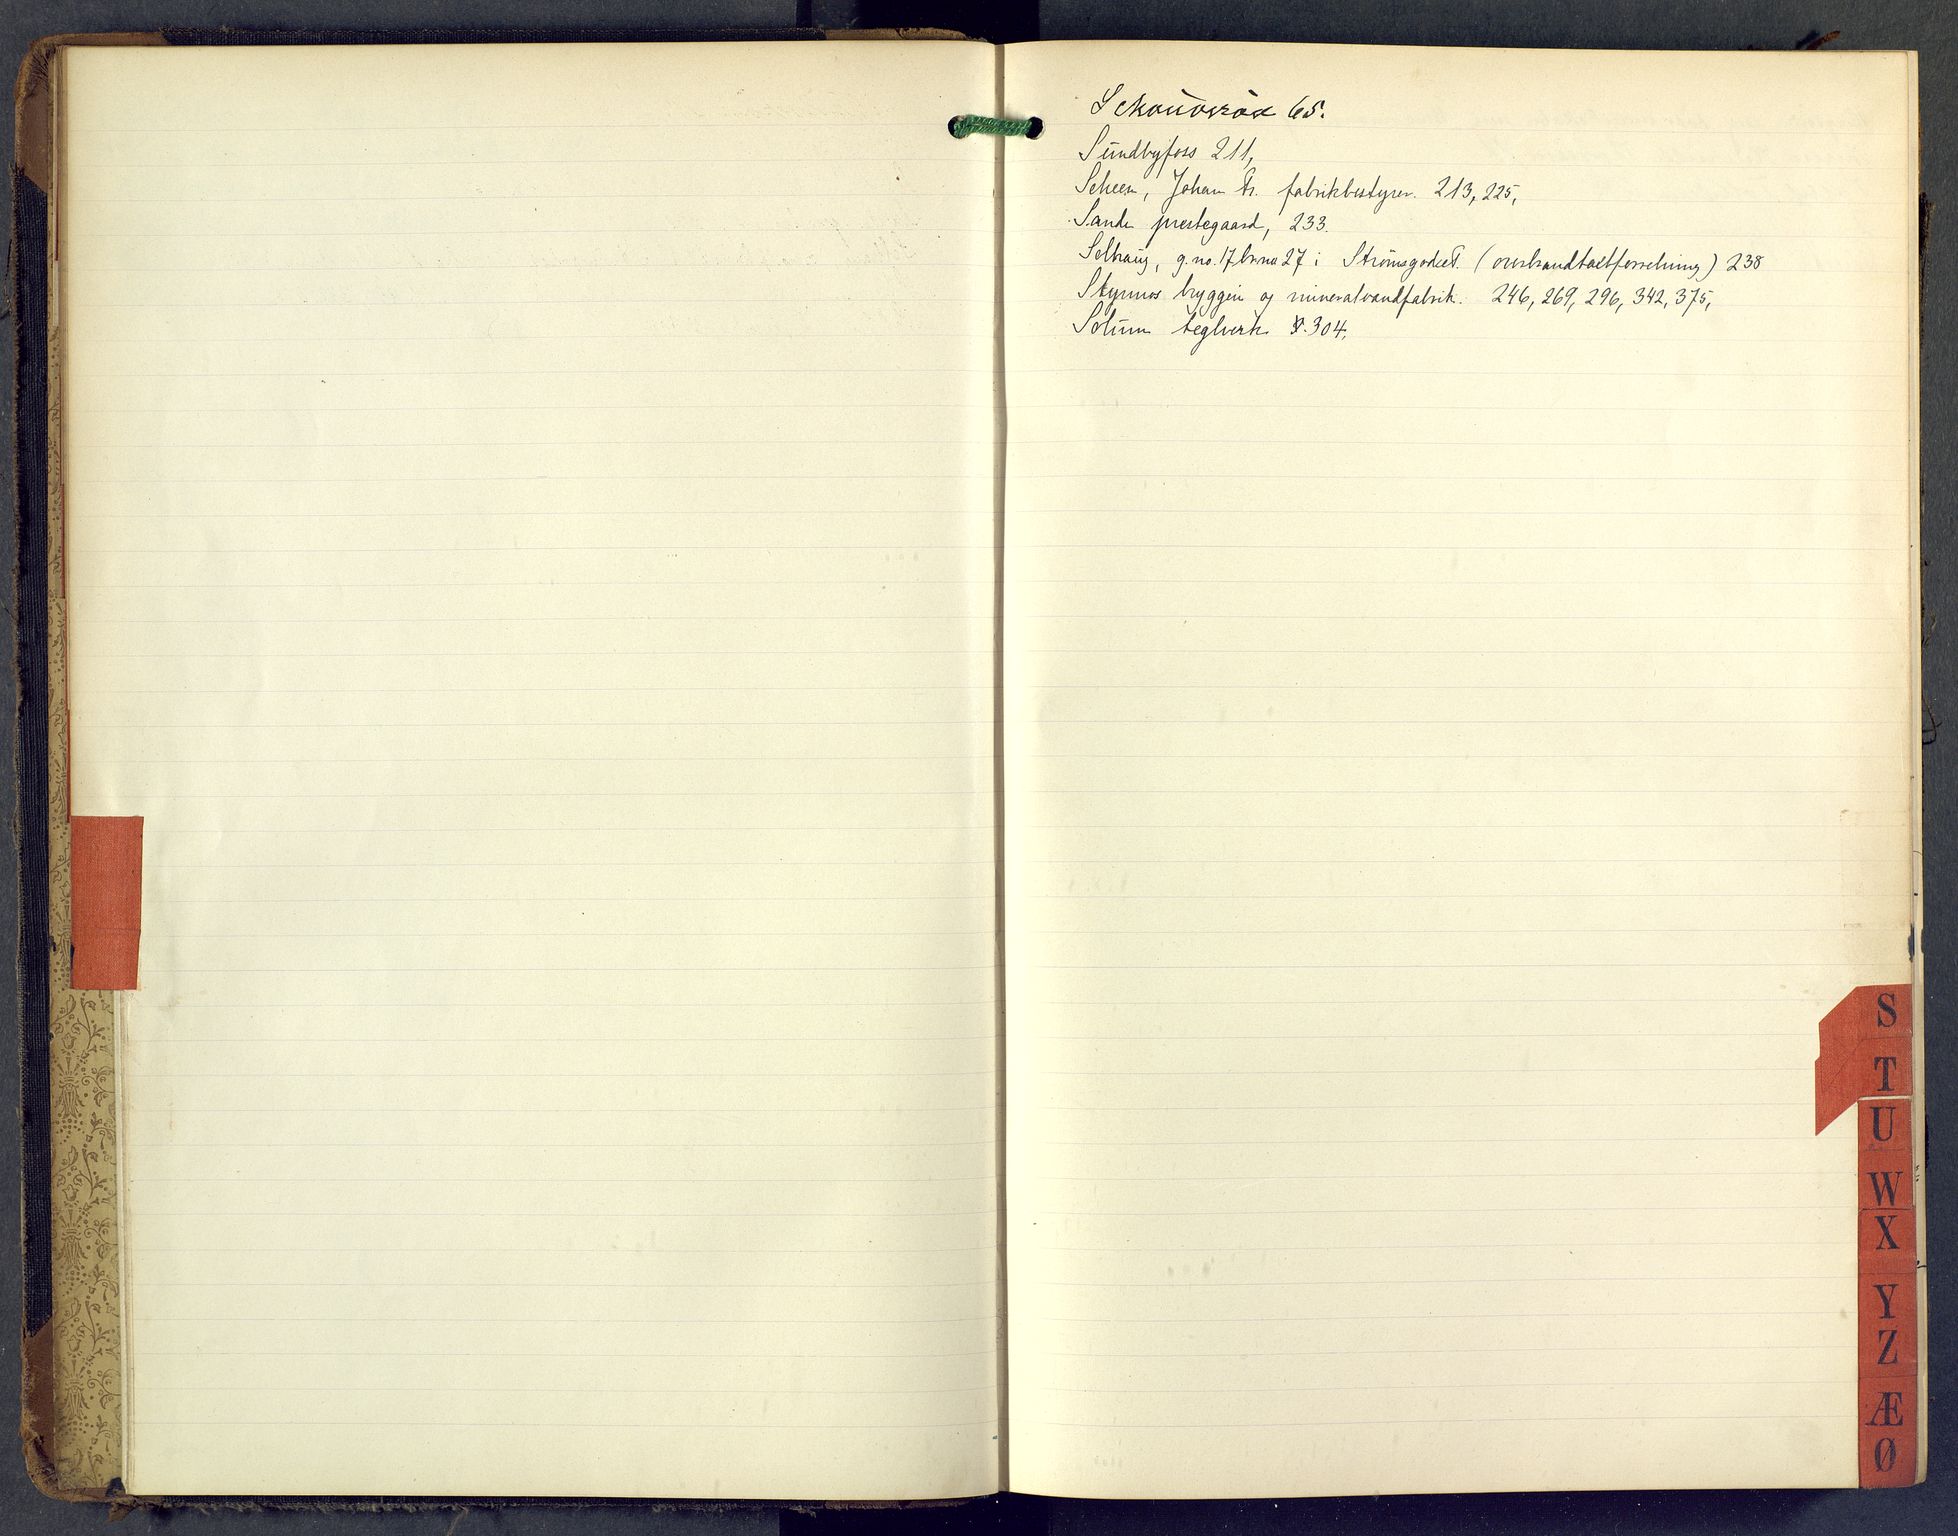 65.
Sundbyfoss 211,
Scheen, Johan Fr. fabrikbestyrer. 213, 225,
Sande prestegaard, 233.
Solhaug, g.no. 17 br.no 27 i Strømsgodset. (overbrandtakstforretning) 238
Styrmos bryggeri og mineralvandfabrik. 246, 269, 296, 342, 375,
Solum teglverk 304,
S
T
U
W
X
Y
Z
Æ
Ø